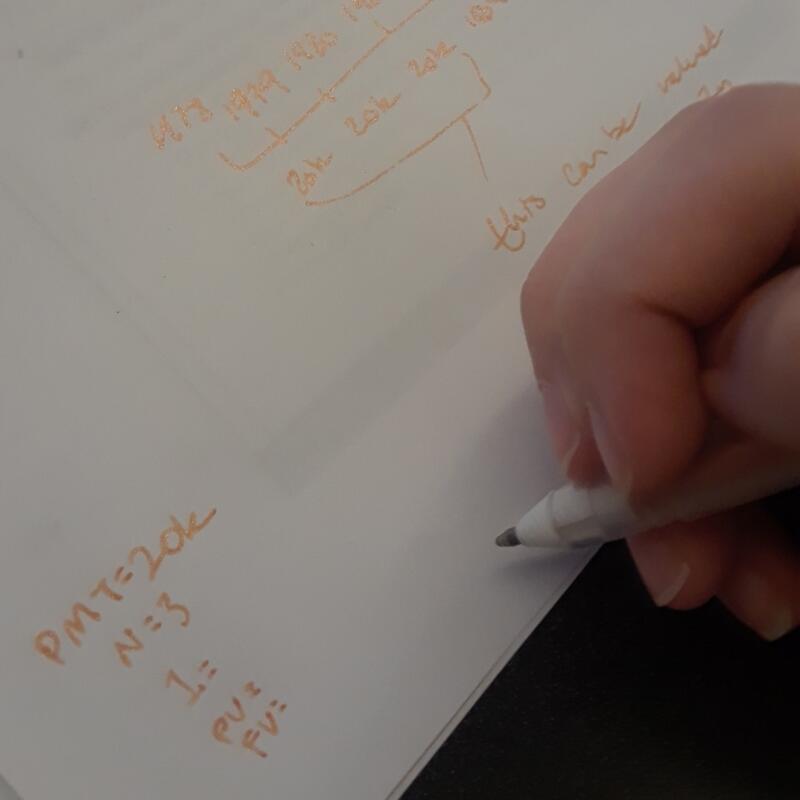 1978 1979 1980
20k 20k 20k
this can be valued
PMT=20k
N=3
I=
PV=
FV=